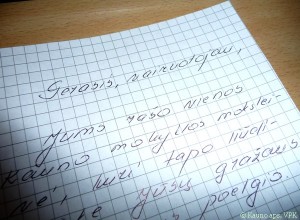 Gerasis, vairuotojau,
Jums rašo vienos
Kauno mokyklos mokslei-
vė, kuri tapo liudi-
ke Jūsų gražaus
poelgio.
© Kauno aps. VPK